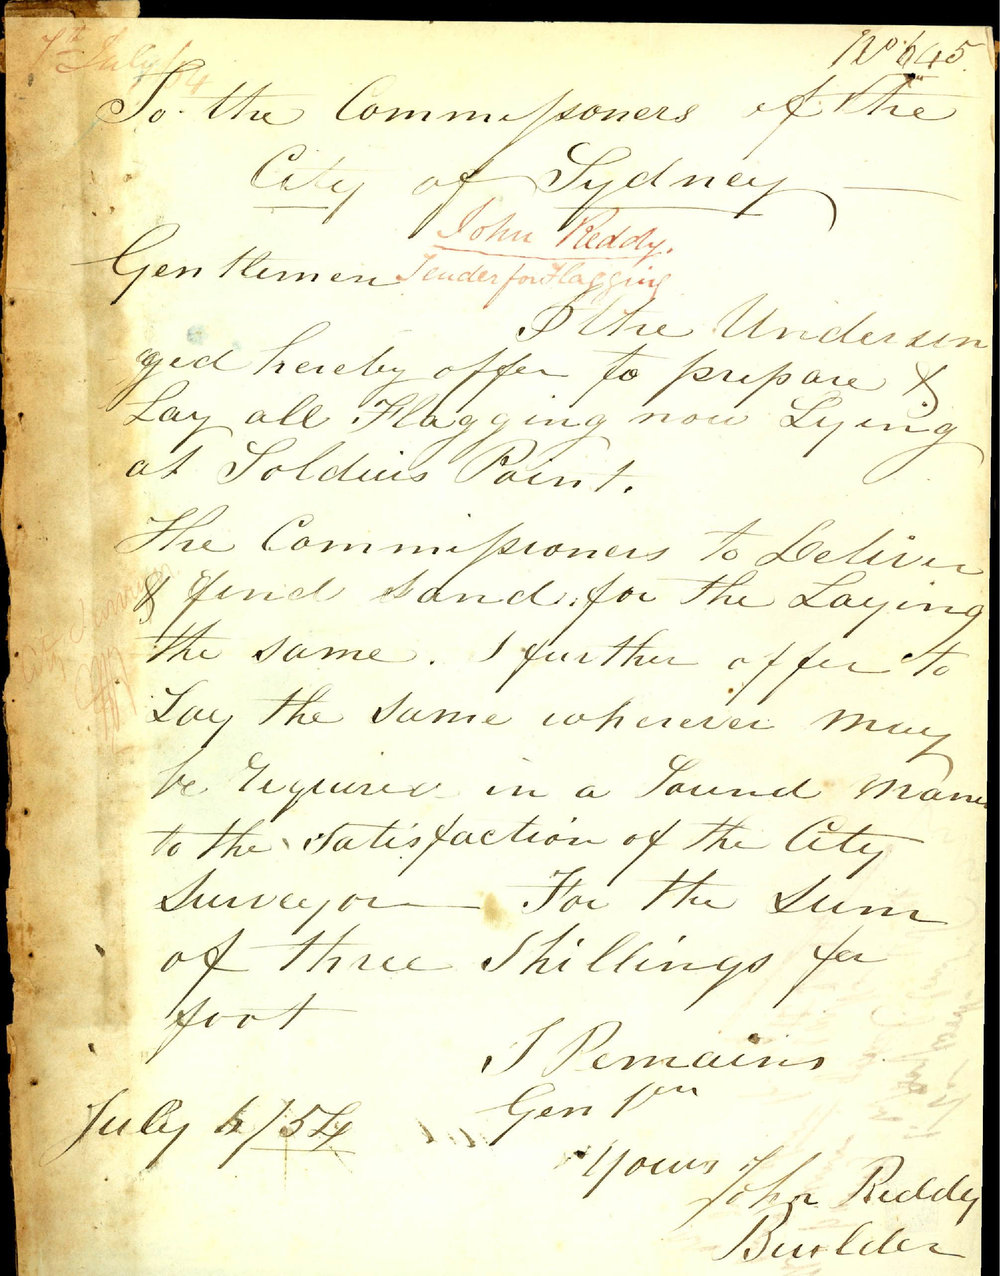 7th July/54
No 645.
To the Commissioners of the
City of Sydney
John Reddy.
Tender for Flagging
Gentlemen
I the Undersin
ged hereby offer to prepare &
Lay all Flagging now Lying
at Soldiers Point.
The Commissioners to Deliver
& find Sand for the Laying
the same. I further offer to
Lay the same wherever may
be required in a Sound Maner
to the Satisfaction of the City
Surveyor — For the Sum
of three Shillings per
foot
City Surveyor
I Remains
Gentn
July 6/54
Yours
John Reddy
Builder